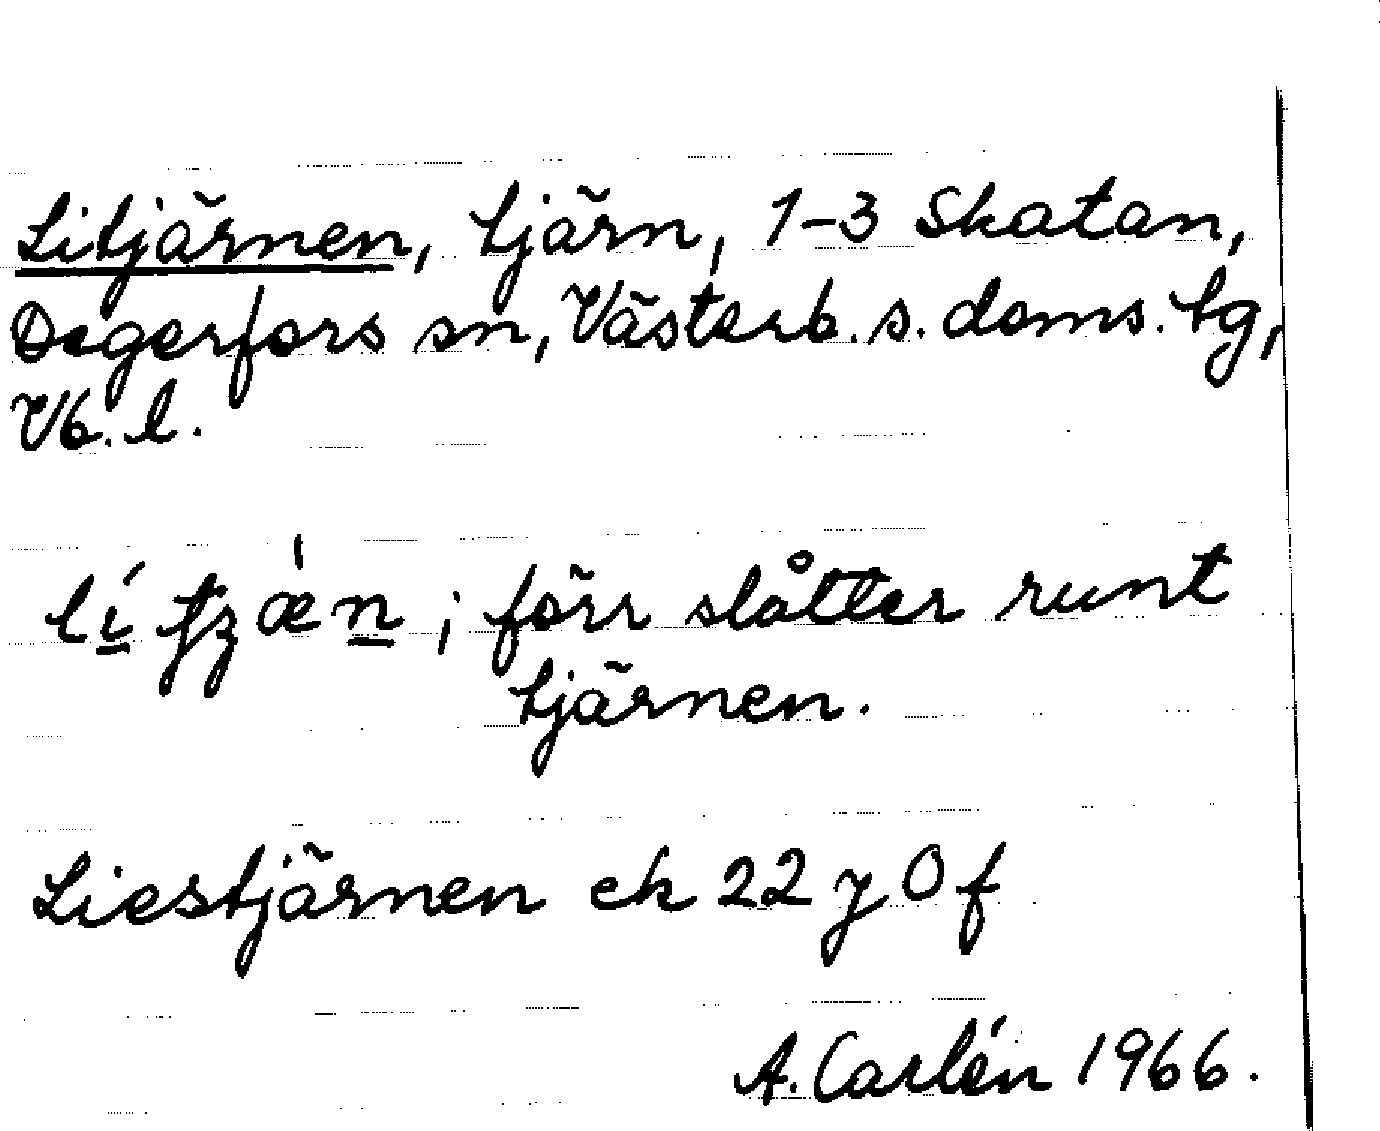 Litjärnen, tjärn, 1-3 Skatan,
Degerfors sn, Västerb. s. doms. tg,
Vb. l.
; förr slåtter runt
tjärnen.
Liestjärnen ek 22 y 0 f
A. Carlén 1966.